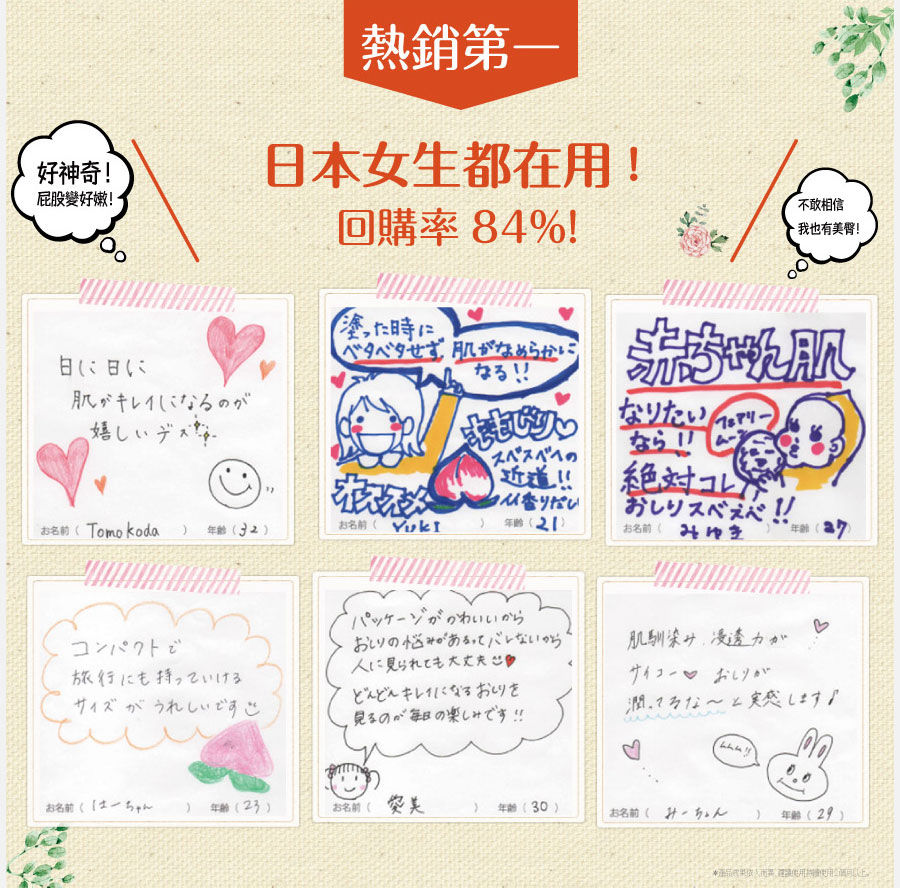 熱銷第一
日本女生都在用！
回購率 84%!
好神奇！
屁股變好嫩！
不敢相信
我也有美臀！
日に日に
肌がキレイになるのが
嬉しいデス
お名前（ Tomo Koda ） 年齢（32）
塗った時に
ベタベタせず
肌がなめらかに
なる!!
ももじり
スベスベへの
近道!!
オススメ
お名前（ YUKI ） 年齢（21）
赤ちゃん肌
なりたい
なら!!
絶対コレ
おしりスベスベ!!
お名前（ みゆき ） 年齢（27）
コンパクトで
旅行にも持っていける
サイズが うれしいです
お名前（ はーちゃん ） 年齢（23）
パッケージがかわいいから
おしりの悩みがあるってバレないから
人に見られても大丈夫
どんどんキレイになるおしりを
見るのが毎日の楽しみです!!
お名前（ 愛美 ） 年齢（30）
肌馴染み、浸透力が
サイコー おしりが
潤ってるな〜と実感します♪
お名前（ みーちゃん ） 年齢（29）